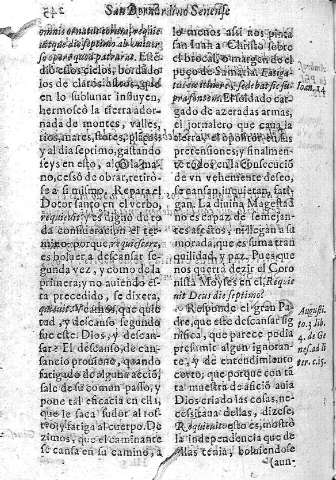 San Bernardino Senense
245
omnis ornatus eorum, requie
uit que die septimo ab vniuer
so opere quod patrarat. Este
dió essos cielos, bordado
los de claros astros, que
en lo sublunar influyen,
hermoseò la tierra ador-
nada de montes, valles,
rios, mares, flores, plaças
y al dia septimo, gastando
seys en esto, alçò la ma
no, cessó de obrar, retirò-
se a si mismo. Repara el
Dotor santo en el verbo,
requieuit, y es digno de to
da consideracion el ter-
mino: porque, requiescere,
es boluer a descansar se-
gunda vez, y como de la
primera, y no auiendo es-
ta precedido, se dixera,
quieuit. Veamos, que quie
tud, y descanso segundo
fue este. Dios, y descan-
sar? El descanso, de can-
sancio prouiene, quando
fatigado de alguna acciõ,
sale de su comun passo, y
pone tal eficacia en ella,
que le saca sudor al ros-
tro, y fatiga al cuerpo. De
zimos, que el caminante
se cansa en su camino, a
lo menos assi nos pinta
san Iuan a Christo sobre
el brocal, o margen del
poço de Samaria. Fatiga-
tus ex itinere, sedebat sic su-
pra fontem. El soldado cat-
gado de azeradas armas,
el jornalero que caua la
tierra, el opositor en sus
pretensiones, y finalmen-
te todos, en la consecuciõ
de vn vehemente deseo,
se cansan, inquietan, fati-
gan. La diuina Magestad
no es capaz de semejan-
tes afectos, ni llegan a su
morada, que es suma tran
quilidad, y paz. Pues que
nos querra dezir el Coro
nista Moyses en el, Requie
uit Deus die septimo?
Responde el gran Pa-
dre, que este descansar sig
nifica, que parece podia
presumir algun ignoran-
te, y de entendimiento
corto, que porque con ta
ta muestra de afició auia
Dios criado las cosas, ne-
cessitaua dellas, dizese,
Requieuit: esto es, mostrò
la independencia que de
llas tenia, boluiendose
(aun-
Ioan. 4
Augusti.
to. 3. lib.
4. de Ge
nes. ad li
ter. c. 15.